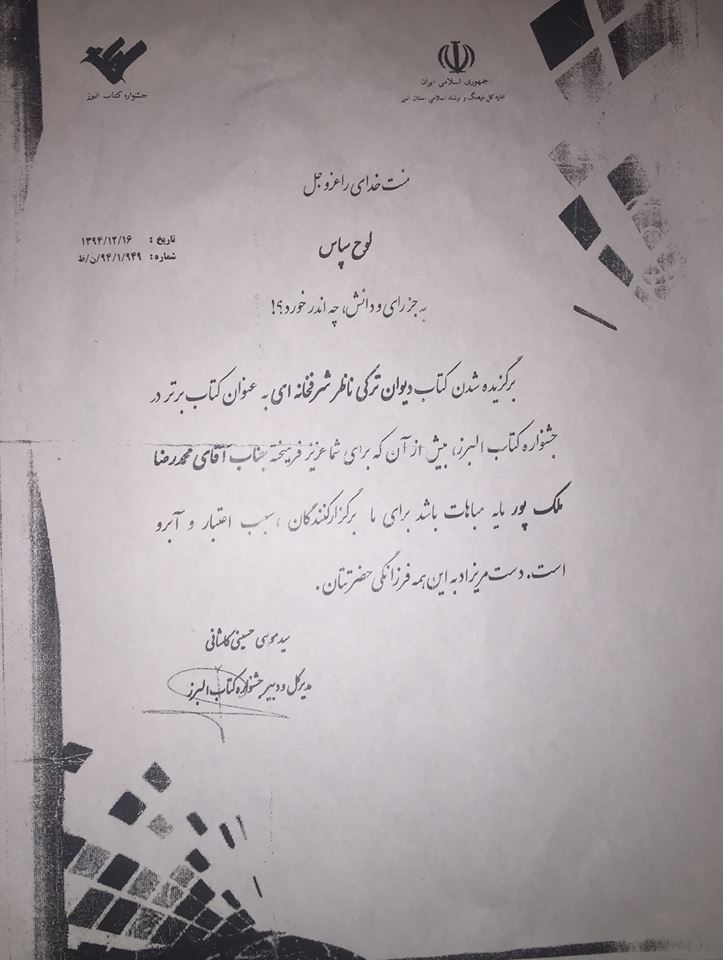 جشنواره کتاب البرز
جمهوری اسلامی ایران
اداره کل فرهنگ و ارشاد اسلامی استان البرز
منت خدای را عزوجل
تاریخ : ۱۳۹۴/۱۲/۱۶
شماره: ۹۴/۱/۹۴۹/ن/ظ
لوح سپاس
به جز رای و دانش، چه اندر خورد؟!
برگزیده شدن کتاب دیوان ترکی ناظر شرفخانه ای به عنوان کتاب برتر در
جشنواره کتاب البرز، بیش از آن که برای شما عزیز فریخته جناب آقای محمدرضا
ملک پور مایه مباهات باشد برای ما برگزارکنندگان ،سبب اعتبار و آبرو
است. دست مریزاد به این همه فرزانگی حضرتتان.
سید موسی حسینی کاشانی
مدیرکل و دبیر جشنواره کتاب البرز